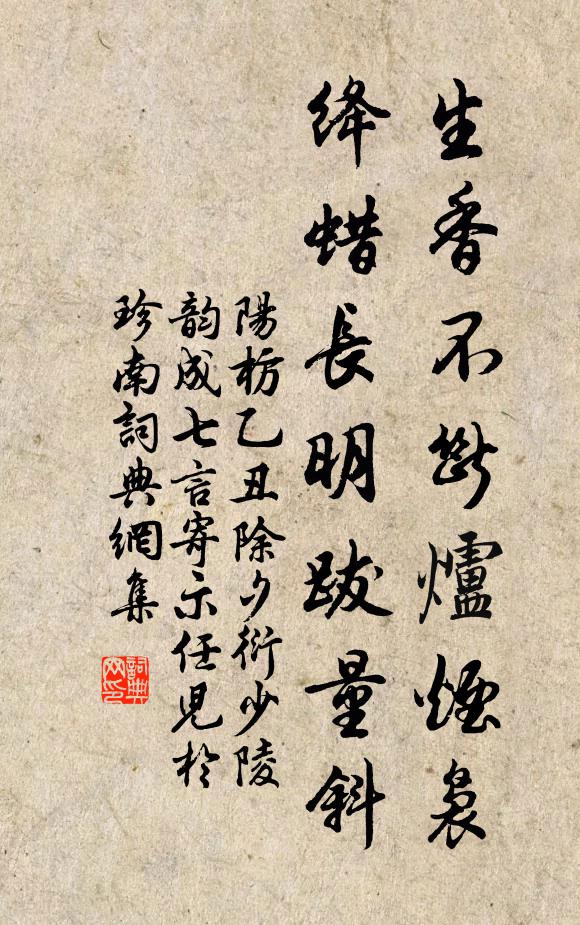 生香不斷爐煙裊
絳蜡長明跋量斜
陽枋乙丑除夕衍少陵
韵成七言寄示任兒於
珍南詞典網集
詞典
网印